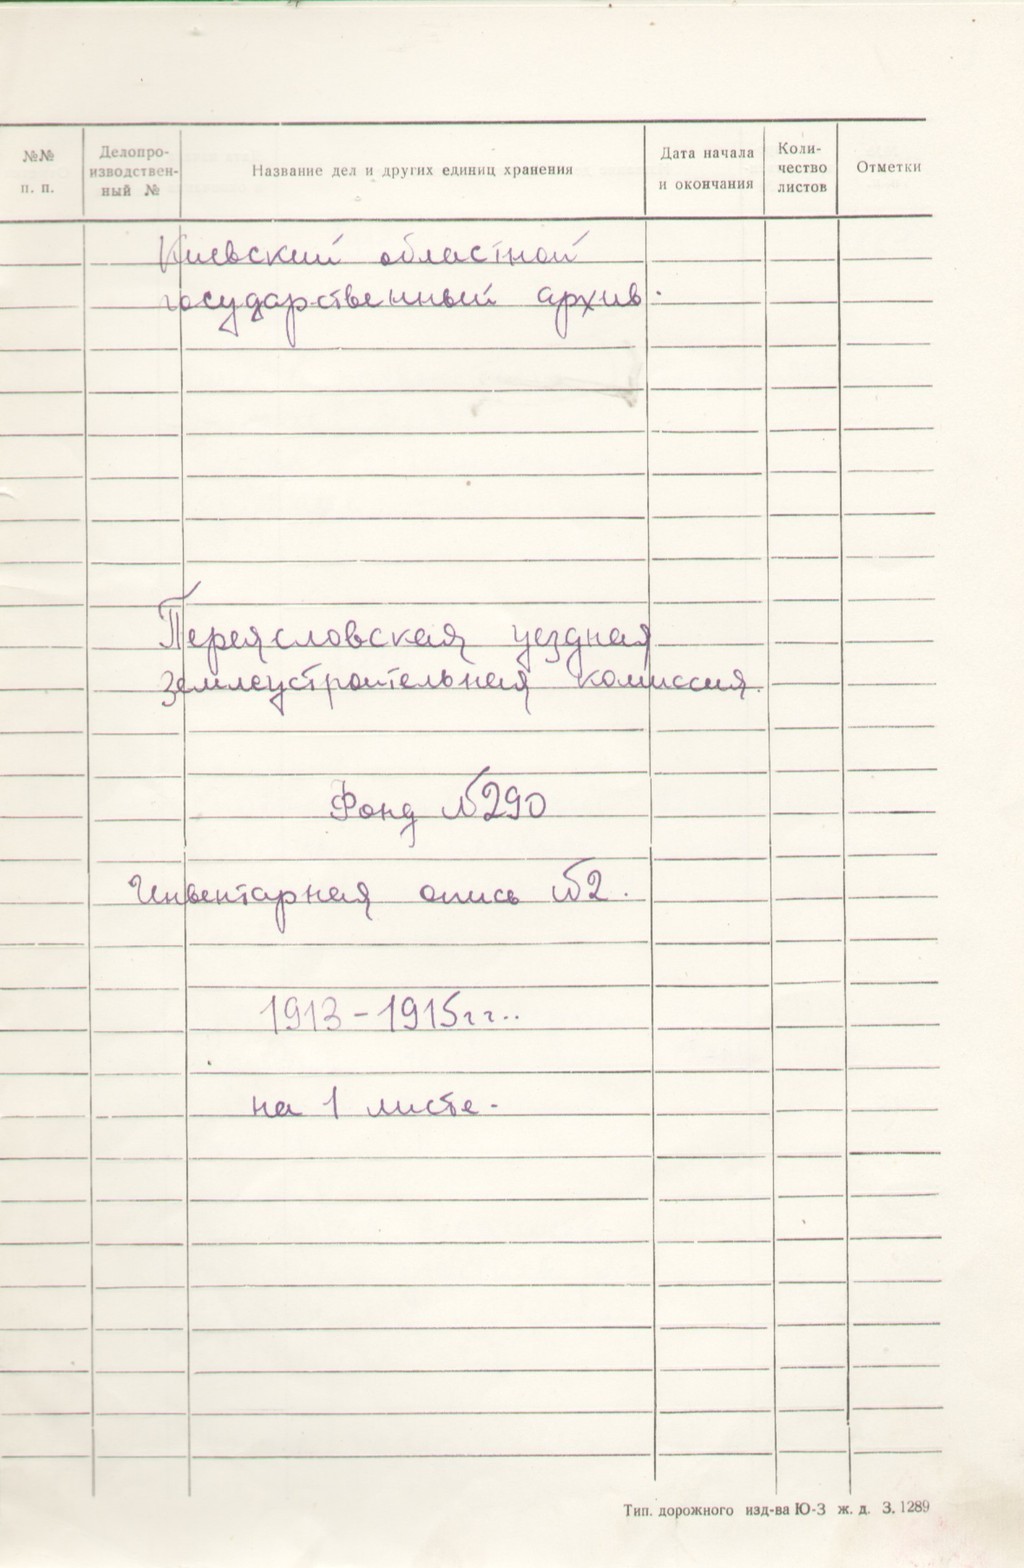 №№ п. п.
Делопро-
изводствен-
ный №
Название дел и других единиц хранения
Дата начала
и окончания
Коли-
чество
листов
Отметки
Киевский областной
государственный архив.
Переясловская уездная
землеустроительная комиссия.
Фонд №290
Инвентарная опись №2.
1913-1915гг..
на 1 листе.
Тип. дорожного изд-ва Ю-З ж. д. З. 1289